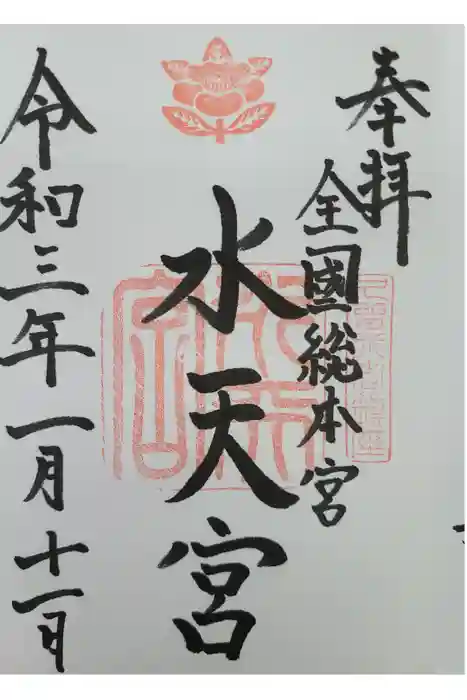 奉拝
全国総本宮
水天宮
令和三年一月十一日